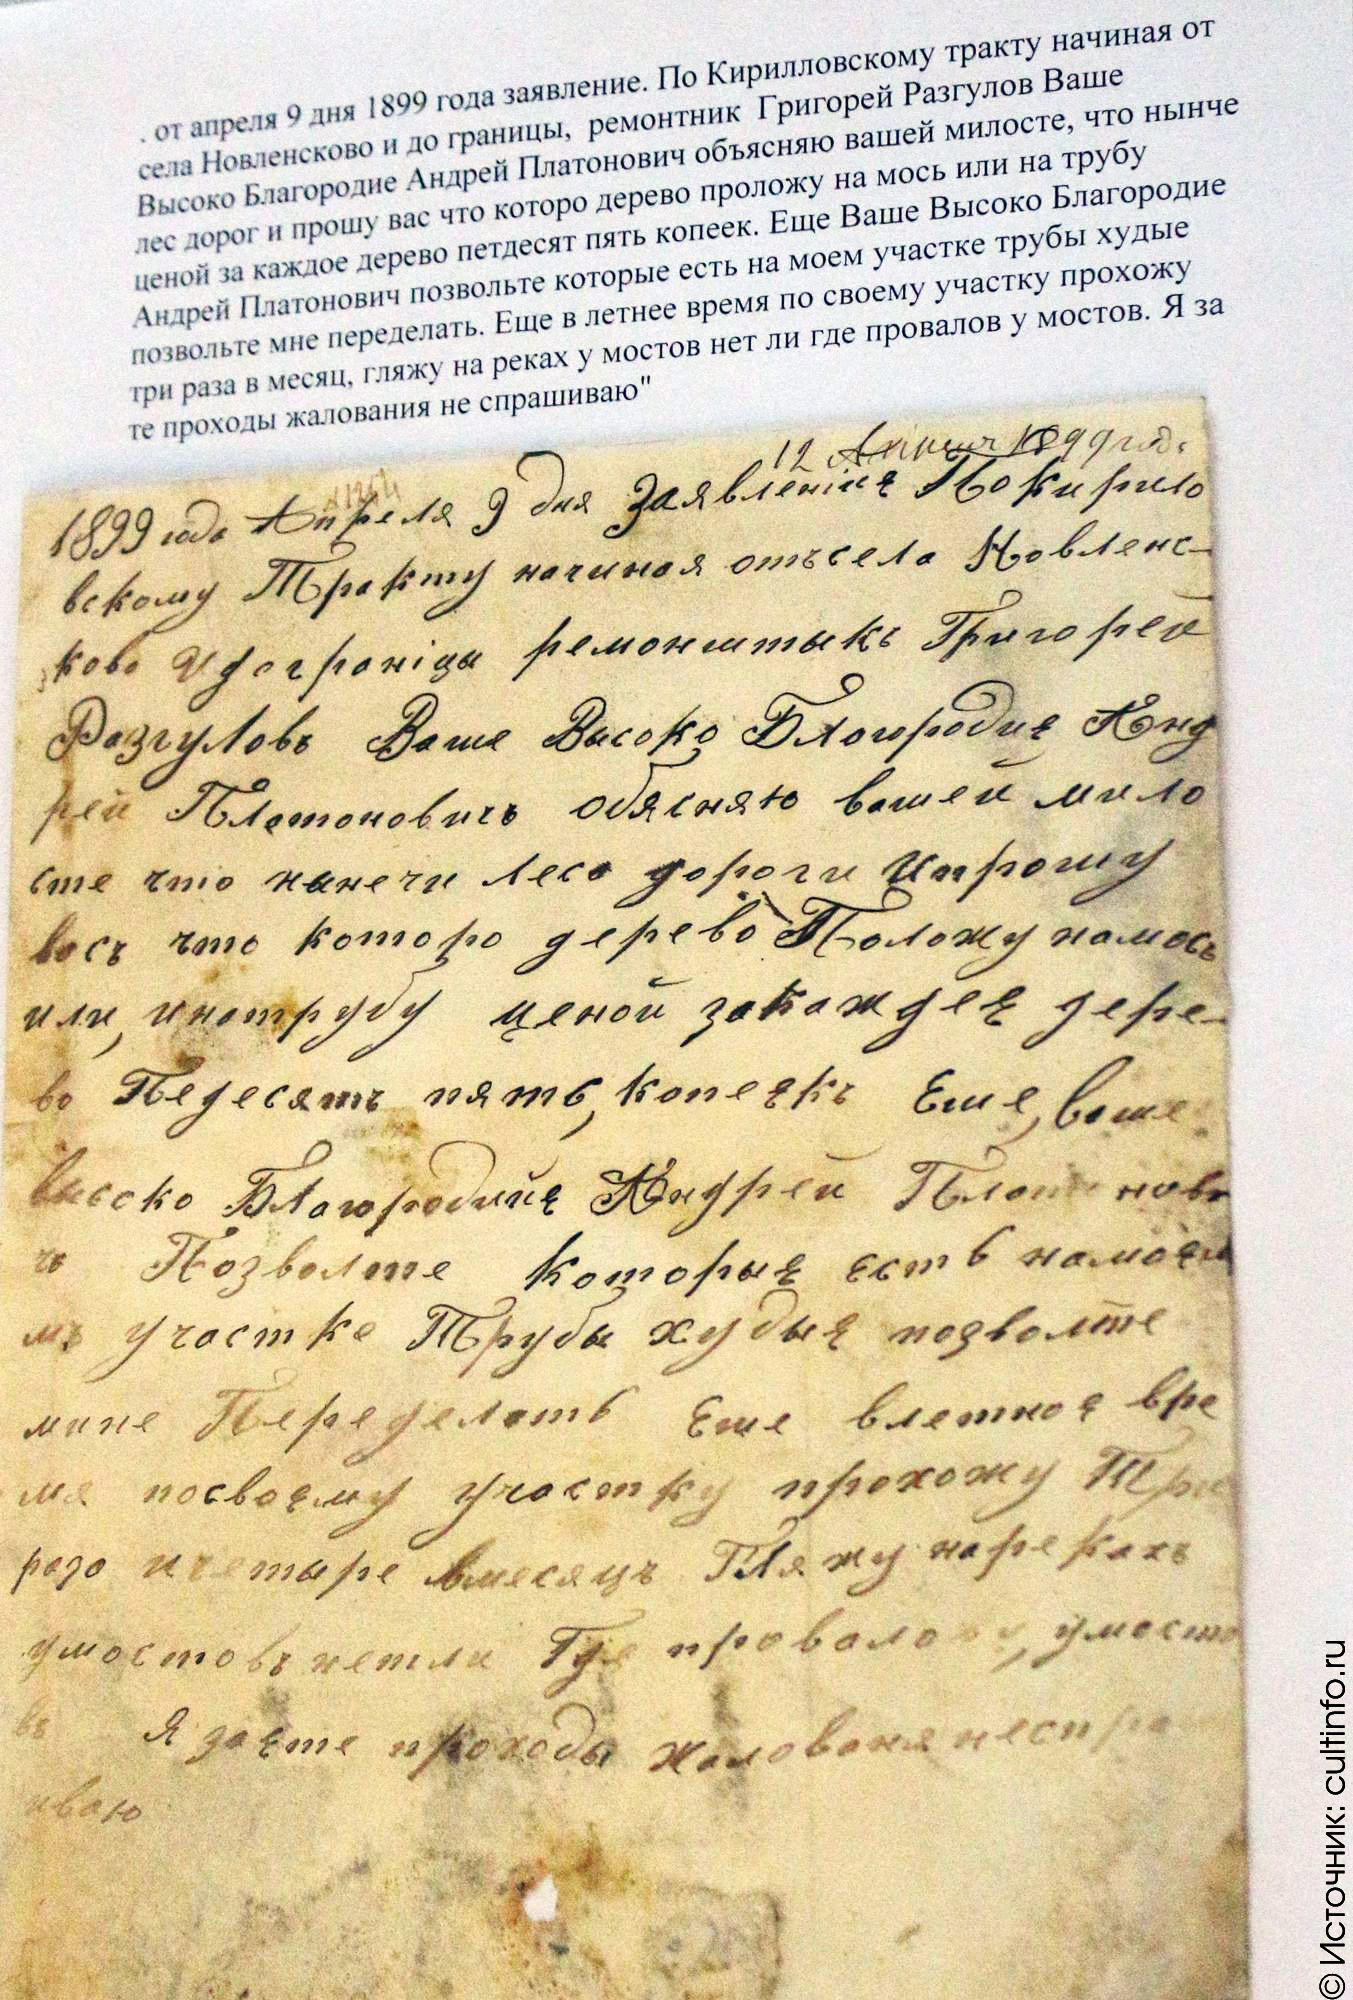 . от апреля 9 дня 1899 года заявление. По Кирилловскому тракту начиная от
села Новленсково и до границы, ремонтник Григорей Разгулов Ваше
Высоко Благородие Андрей Платонович объясняю вашей милосте, что нынче
лес дорог и прошу вас что которо дерево проложу на мось или на трубу
ценой за каждое дерево петдесят пять копеек. Еще Ваше Высоко Благородие
Андрей Платонович позвольте которые есть на моем участке трубы худые
позвольте мне переделать. Еще в летнее время по своему участку прохожу
три раза в месяц, гляжу на реках у мостов нет ли где провалов у мостов. Я за
те проходы жалования не спрашиваю"
12 1899 год.
1899 года Апреля 9 дня Заявленiие По кирило
вскому Тракту начиная отъсела Новленс-
ково И дограніцы ремонштыкъ Григорей
Разгуловъ Ваше Высоко Благородие Анд
рей Платоновичъ обясняю вашей мило
сте что нынечи лесо дороги Ипрошу
васъ что которо дерево Положу намось
или, инатрубу ценой закаждее дере-
во Педесятъ пять, копеекъ Еше, ваше
высоко Благородийе Андрей Платонови
чъ Позволте которые есть намоем
мъ участке Трубы худые позволте
мине Переделать Еше влетное вре
мя посвоему участку прохожу Три
раза ичетыре вмесяцъ Гляжу нарекахъ
умостовъ нетли Где провалов, умосто
въ Я заете проходы жалованя неспра
иваю
© Источник: cultinfo.ru